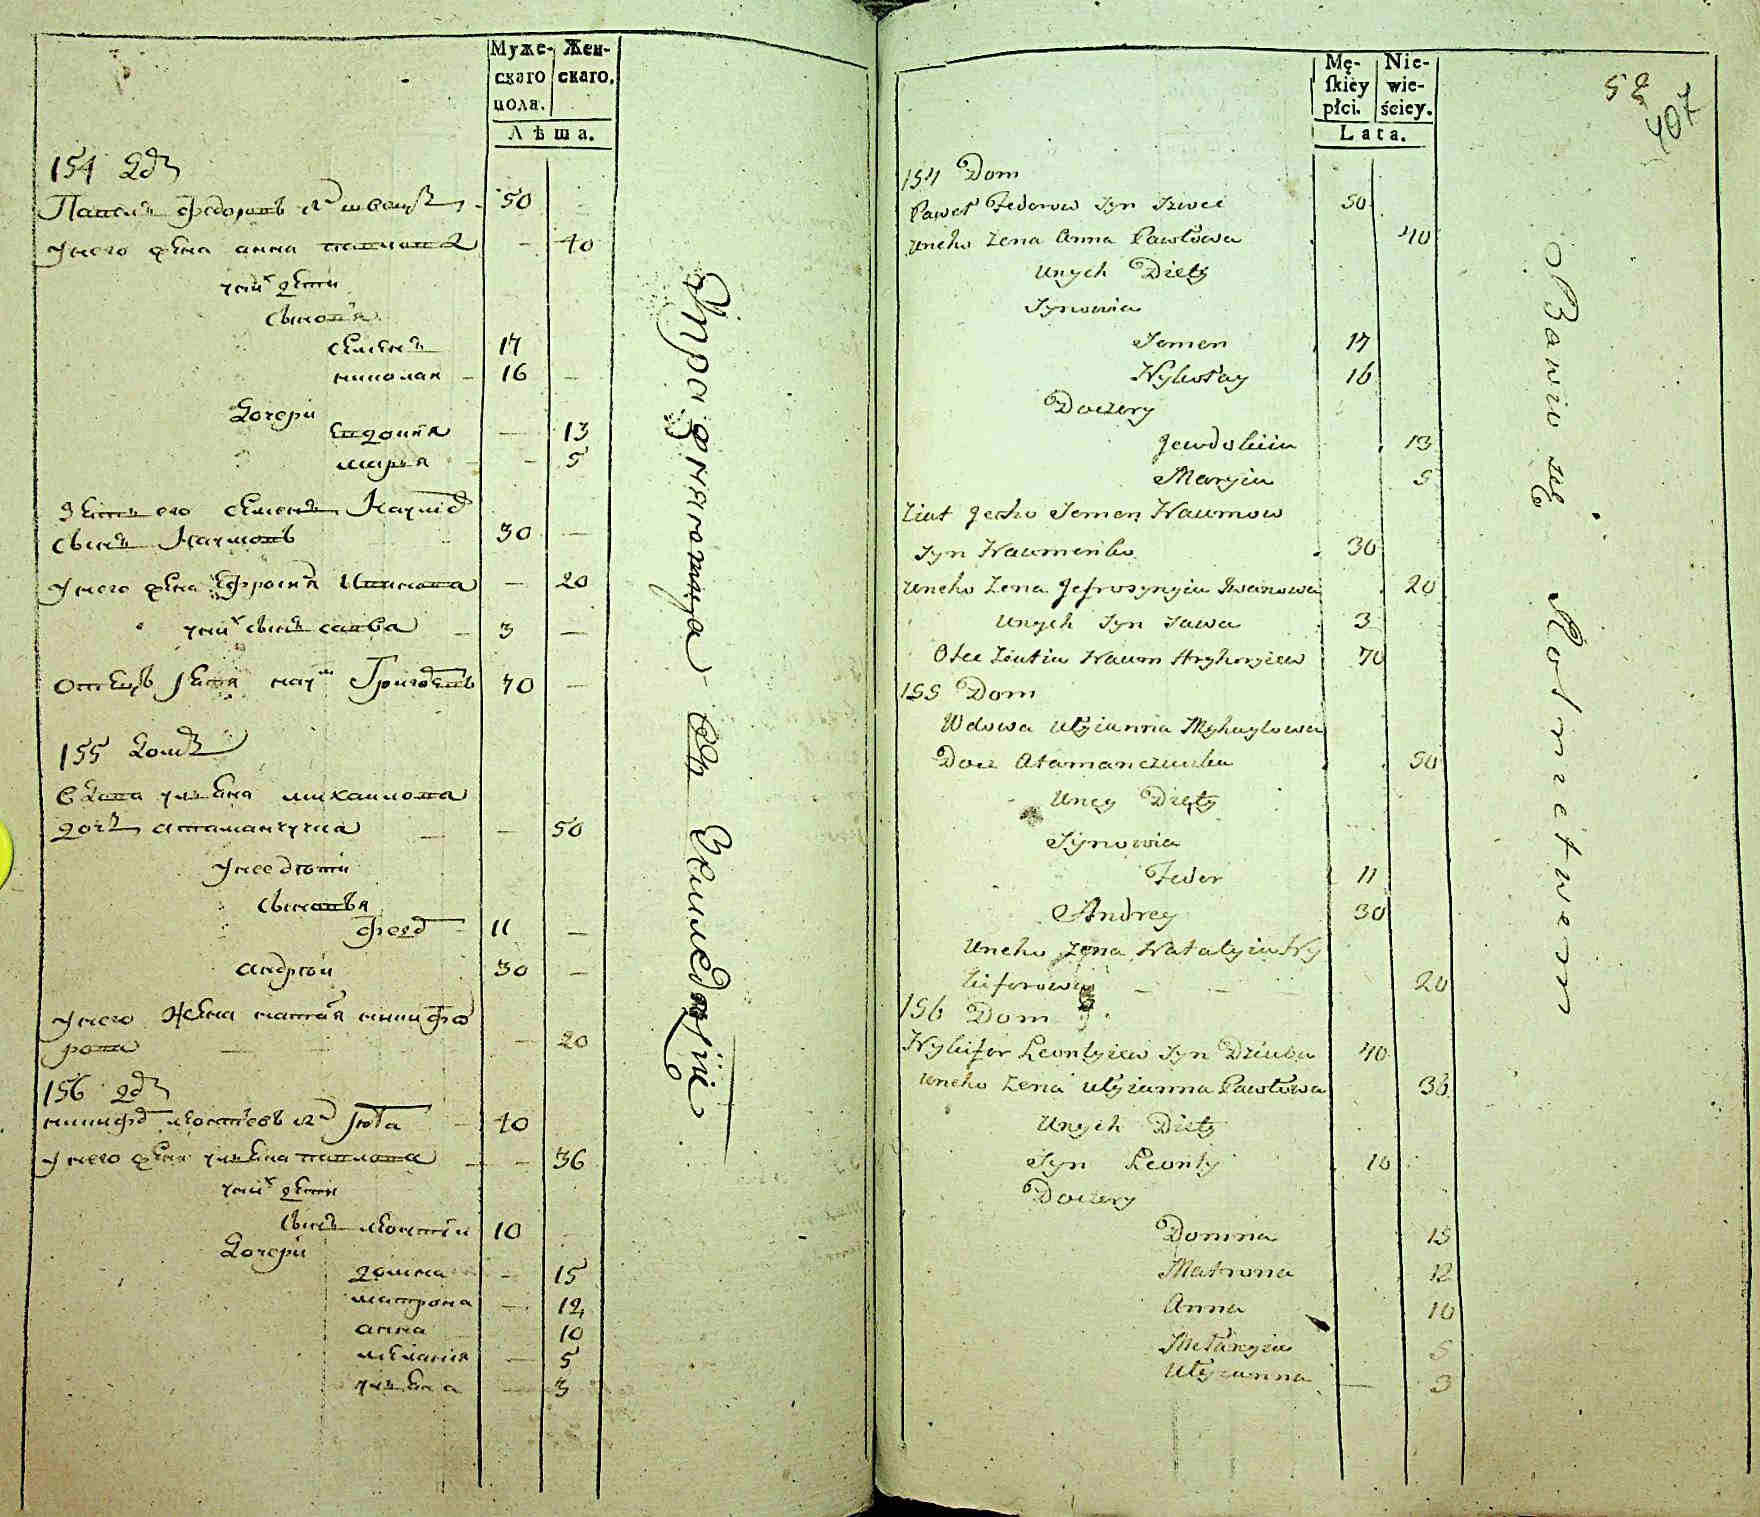 Муже-
скаго
пола.
Жен-
скаго.
Лѣта.
154 Дом
Павелъ Федоровъ Швецъ 50
у него жена анна павлова 40
у них дети
Сыновя
Семенъ 17
николай 16
Дочери
Евдокия 13
марья 5
Зять его Семенъ Наумов
Сынъ Наумовъ 30
у него жена Ефросиня Иванова 20
у них сынъ савва 3
Отецъ зятя наум Григоревъ 70
155 Домъ
Вдова ульяна михаилова
дочь атаманчучка 50
у нее дети
Сыновья
федор 11
андрей 30
у него Жена наталя никифо
рова 20
156 дом
никифор леонтьевъ 40
у него жена ульяна павлова 36
у них дети
Сынъ леонтий 10
Дочери
домна 15
матрона 12
анна 10
мелания 5
ульяна 3
Mę-
skiey
płci.
Nie-
wie-
ściey.
Lata.
52
407
154 Dom
Paweł Fedorow Syn Szwec 50
uneho Zena Anna Pawłowa 40
Unych Diety
Synowia
Semen 17
Nykołay 16
Doczery
Jewdokiia 13
Maryia 5
Ziat Jeho Semen Naumow
Syn Naumenko 30
uneho Zena Jefrosynyia Iwanowa 20
Unych Syn Sawa 3
Otec Ziatia Naum Hryhoryiew 70
155 Dom
Wdowa Ulyianna Myhayłowa
Docz Atamanczuczka 50
Uney Diety
Synowia
Fedor 11
Andrey 30
Uneho Zena Natalyia Ny
kiforowa 20
156 Dom
Nykifor Leontyiew Syn Dziuba 40
uneho Zena Ulyianna Pawłowa 36
Unych Diety
Syn Leonty 10
Doczery
Domna 15
Matrona 12
Anna 10
Mełanyia 5
Ulyianna 3